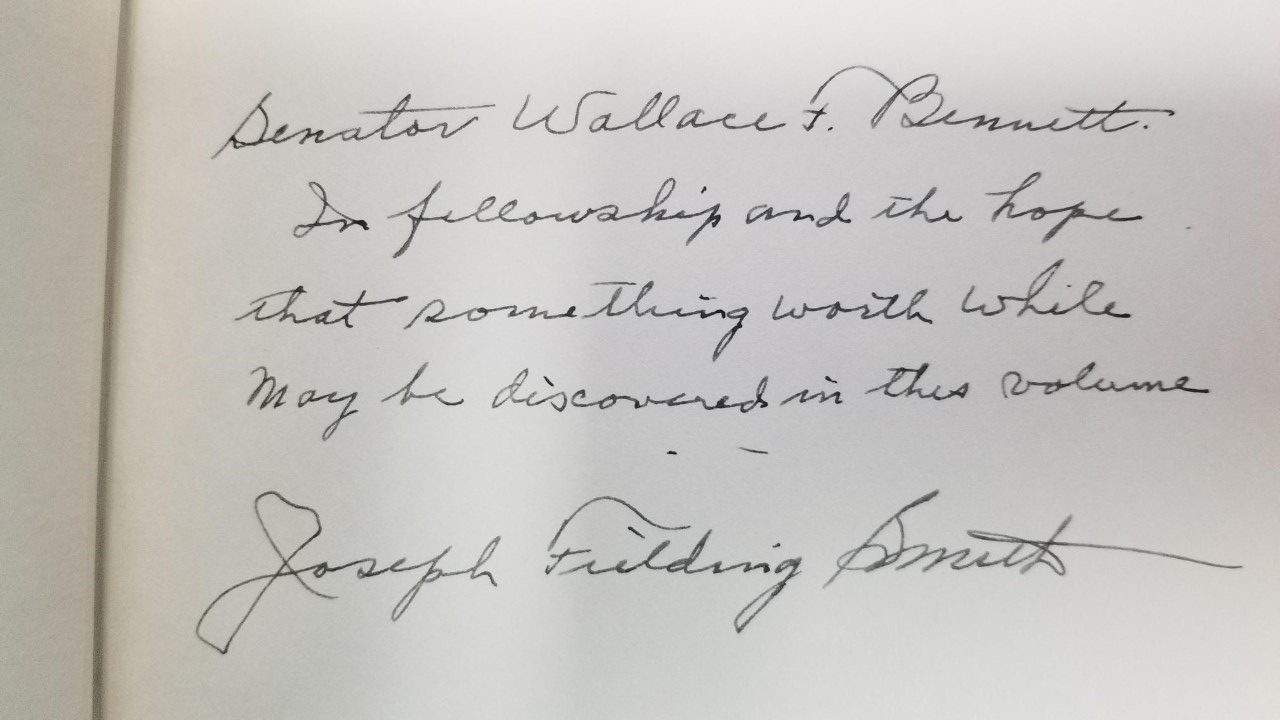 Senator Wallace F. Bennett.
In fellowship and the hope
that something worth while
May be discovered in this volume
Joseph Fielding Smith